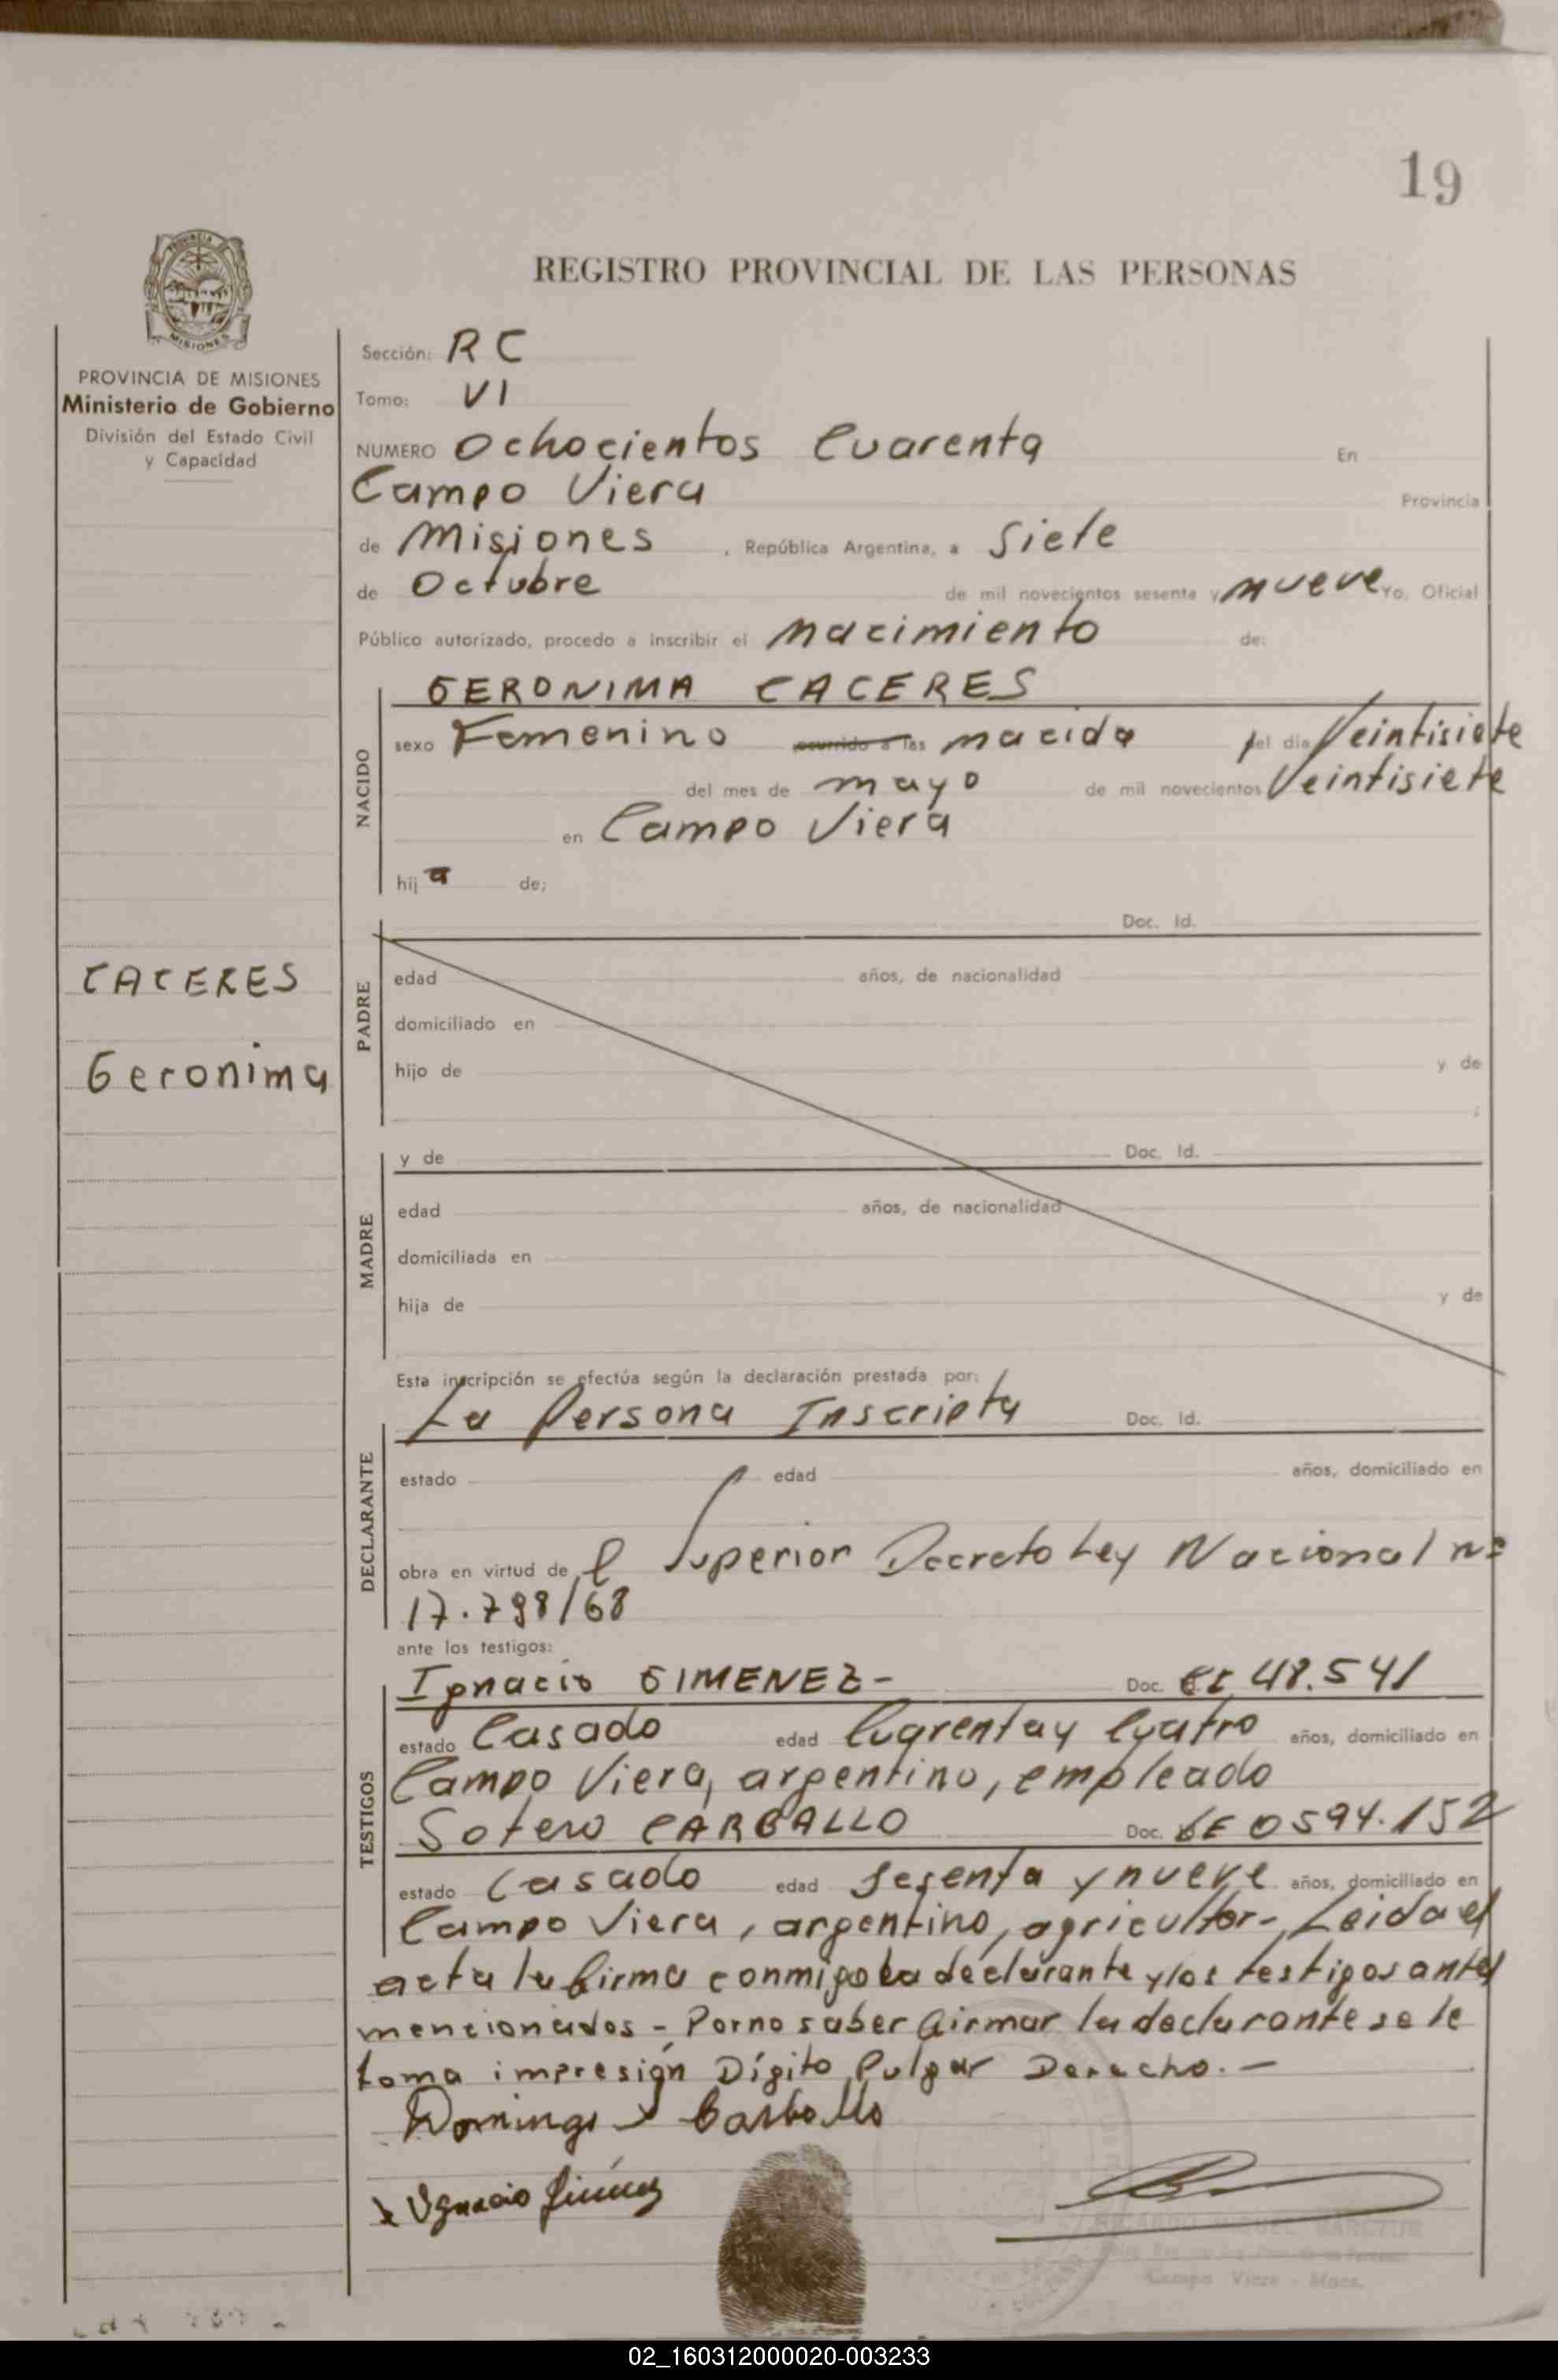 19
REGISTRO PROVINCIAL DE LAS PERSONAS
PROVINCIA DE MISIONES
Ministerio de Gobierno
División del Estado Civil
y Capacidad
CACERES
Geronima
Sección: RC
Tomo: VI
NUMERO Ochocientos Cuarenta En
Campo Viera Provincia
de Misiones , República Argentina, a Siete
de Octubre de mil novecientos sesenta y nueve Yo, Oficial
Público autorizado, procedo a inscribir el nacimiento de:
NACIDO
GERONIMA CACERES
sexo Femenino ocurrido a las nacida el día Veintisiete
del mes de mayo de mil novecientos Veintisiete
en Campo Viera
hija de;
PADRE
Doc. Id.
edad años, de nacionalidad
domiciliado en
hijo de y de
;
MADRE
y de Doc. Id.
edad años, de nacionalidad
domiciliada en
hija de y de
Esta inscripción se efectúa según la declaración prestada por:
DECLARANTE
La Persona Inscripta Doc. Id.
estado edad años, domiciliado en
obra en virtud del Superior Decreto Ley Nacional nº
17.798/68
ante los testigos:
TESTIGOS
Ignacio GIMENEZ- Doc. 48.541
estado Casado edad Cuarenta y Cuatro años, domiciliado en
Campo Viera, argentino, empleado
Sotero CARBALLO Doc. 0594.152
estado Casado edad Sesenta y nueve años, domiciliado en
Campo Viera, argentino, agricultor- Leida el
acta la firma conmigo la declarante y los testigos antes
mencionados - Por no saber firmar la declarante se le
toma impresión Dígito Pulgar Derecho.-
Carballo
Ignacio Giménez
Campo Viera - Mnes.
02_160312000020-003233